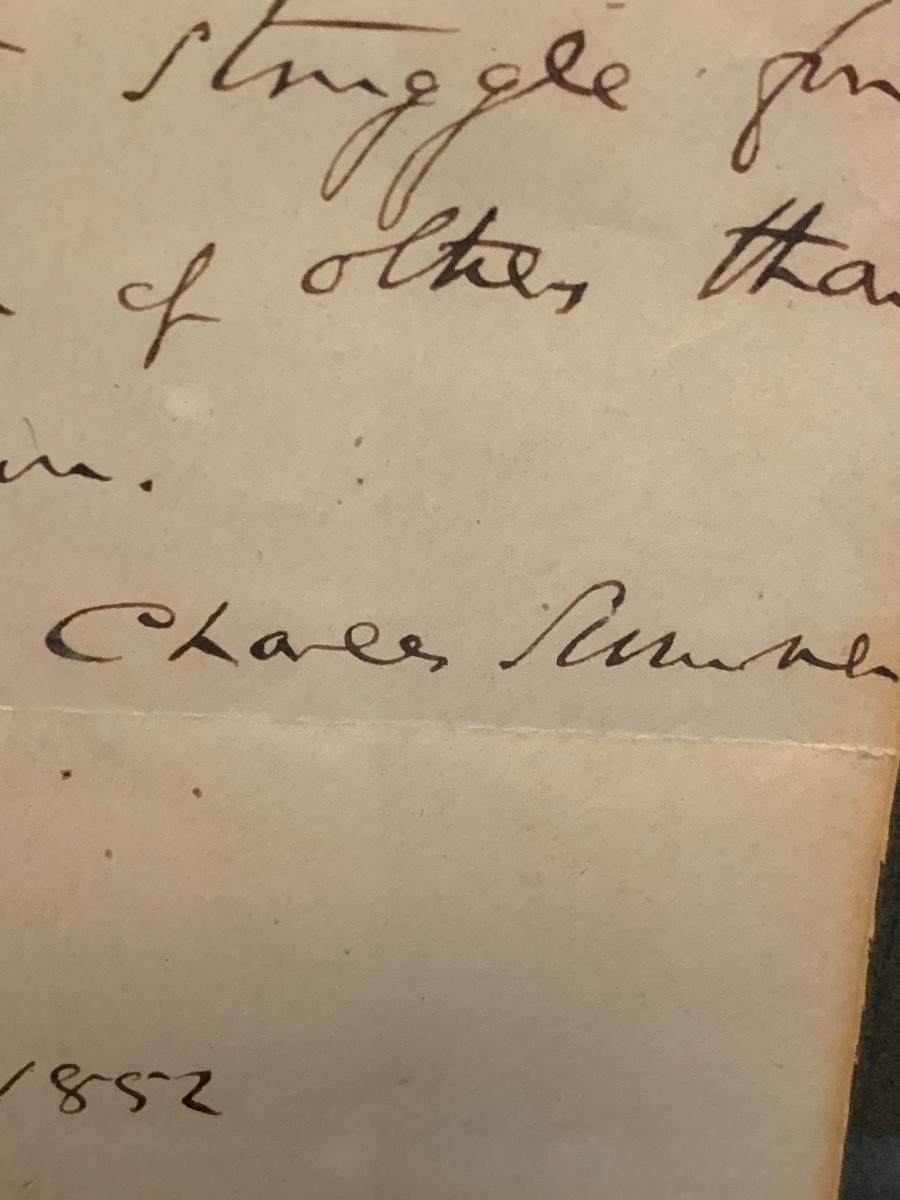 struggle for
of others than
Charles Sumner
1852